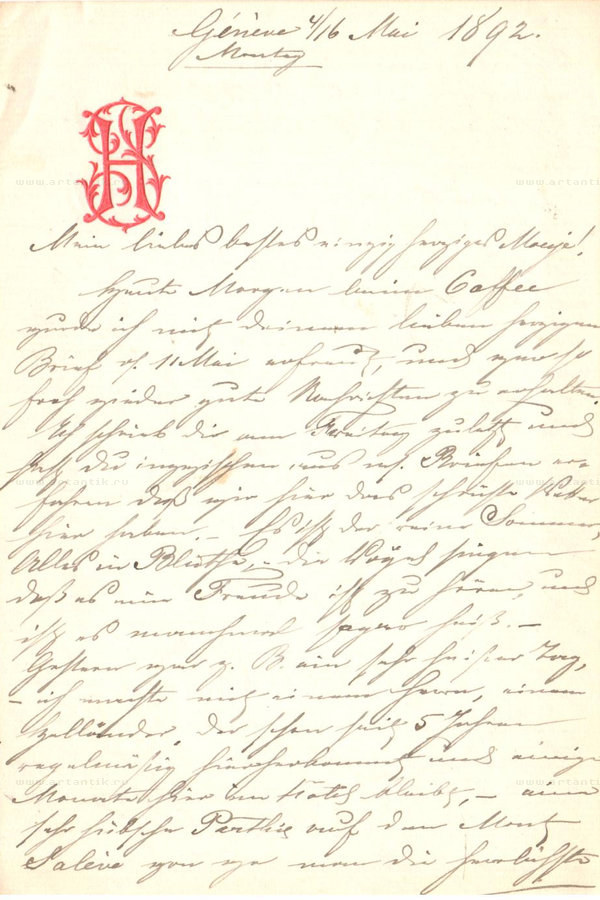 Génève 4/16 Mai 1892.
Montag
H
Mein liebes bestes einzig herziges
Heute Morgen beim Caffee
wurde ich mit deinem lieben herzigen
Brief v. 11 Mai erfreut, und war so
froh wieder gute Nachrichten zu erhalten.
Ich schrieb dir am Freitag zuletzt und
hast du inzwischen aus m. Briefen er-
fahren daß wir hier das schönste Wetter
hier haben. – Es ist der reine Sommer,
Alles in Blüthe, – die Vögel singen
daß es eine Freude ist zu hören, und
ist es manchmal sogar heiß. –
Gestern war z. B. ein sehr heißer Tag,
– ich machte mit einem Herrn, einem
Holländer, der schon seit 5 Jahren
regelmäßig hierherkommt und einige
Monate hier im Hotel bleibt, – eine
sehr hübsche Parthie auf den Mont
Salève von wo man die herrlichste
www.artantik.ru
www.artantik.ru
www.artantik.ru
www.artantik.ru
www.artantik.ru
www.artantik.ru